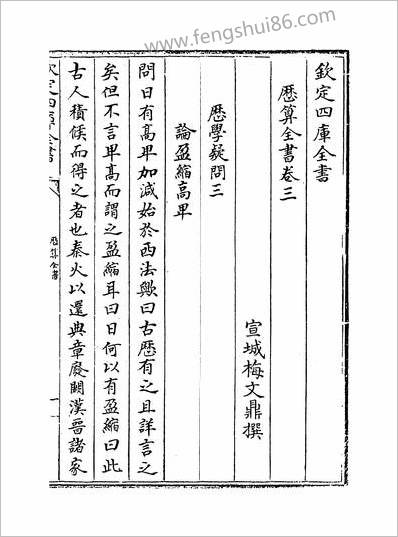 www.fengshui86.com
欽定四庫全書
厯算全書卷三
宣城梅文鼎撰
厯學疑問三
論盈縮高卑
問日有髙卑加減始於西法歟曰古厯有之且詳言之
矣但不言卑髙而謂之盈縮耳曰日何以有盈縮曰此
古人積候而得之者也秦火以還典章廢闕漢晉諸家
欽定四庫全書
厯算全書
一